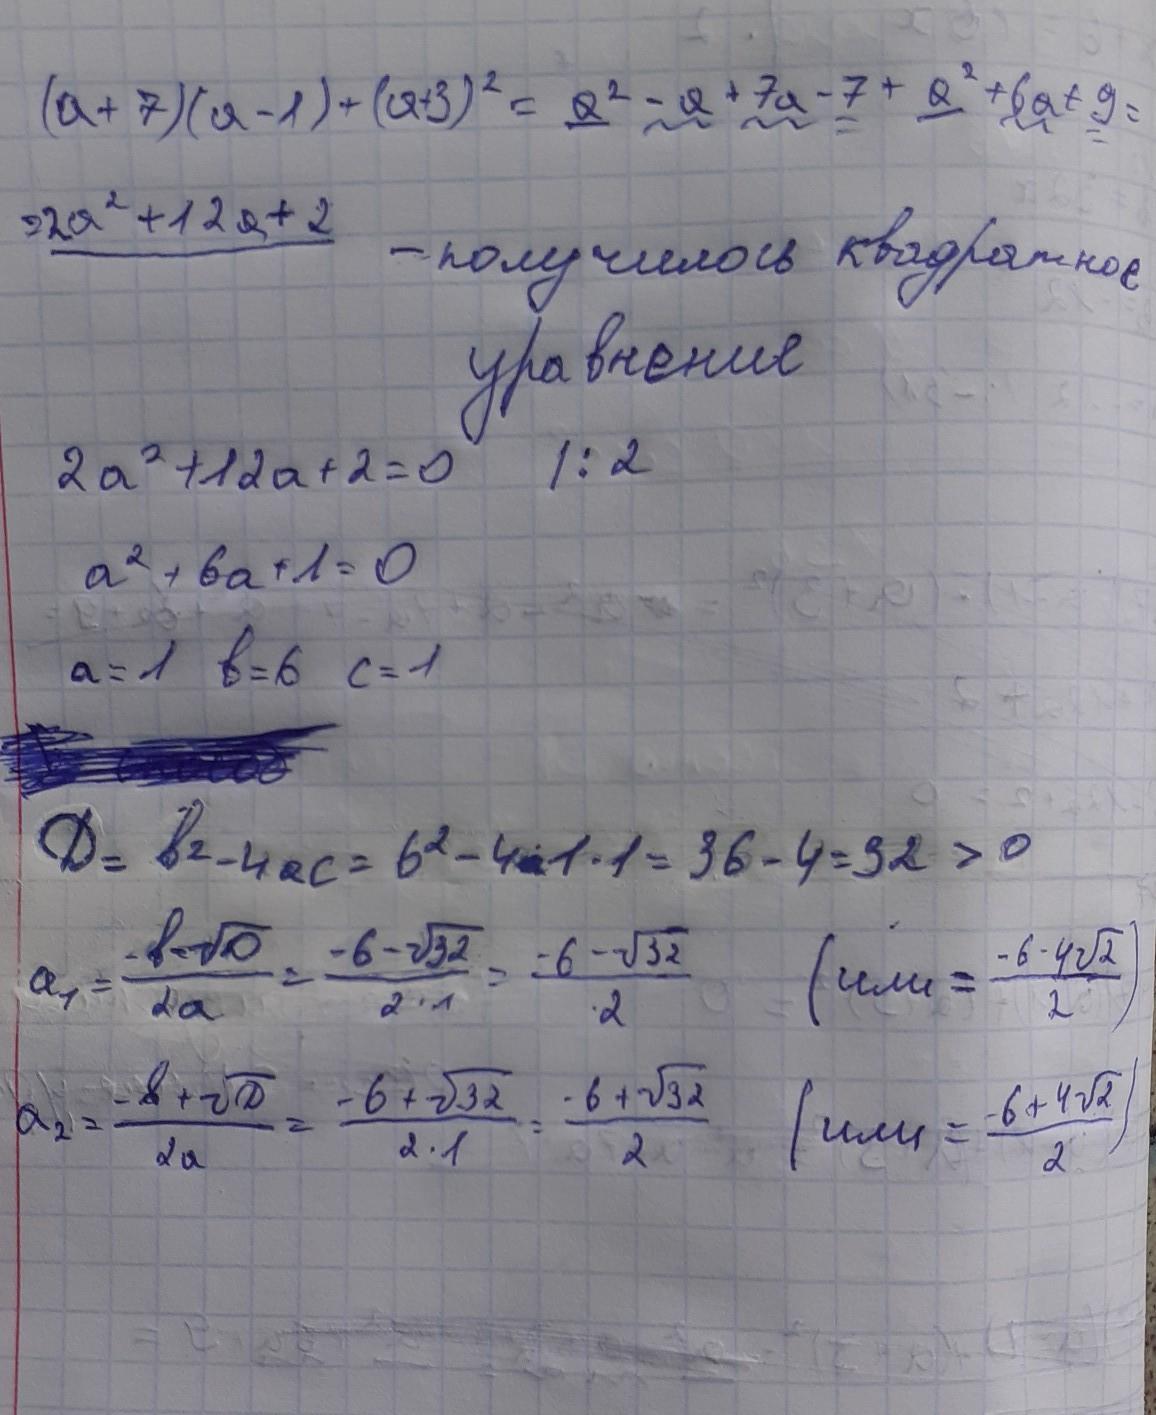 (a+7)(a-1)+(a+3)² = a² - a + 7a - 7 + a² + 6a + 9 =
=2a² + 12a + 2
- получилось квадратное
уравнение
2a² + 12a + 2 = 0 /: 2
a² + 6a + 1 = 0
a = 1 b = 6 c = 1
D = b² - 4ac = 6² - 4·1·1 = 36 - 4 = 32 > 0
a₁ = (-b-√D)/(2a) = (-6-√32)/(2·1) = (-6-√32)/2 (или = (-6-4√2)/2)
a₂ = (-b+√D)/(2a) = (-6+√32)/(2·1) = (-6+√32)/2 (или = (-6+4√2)/2)